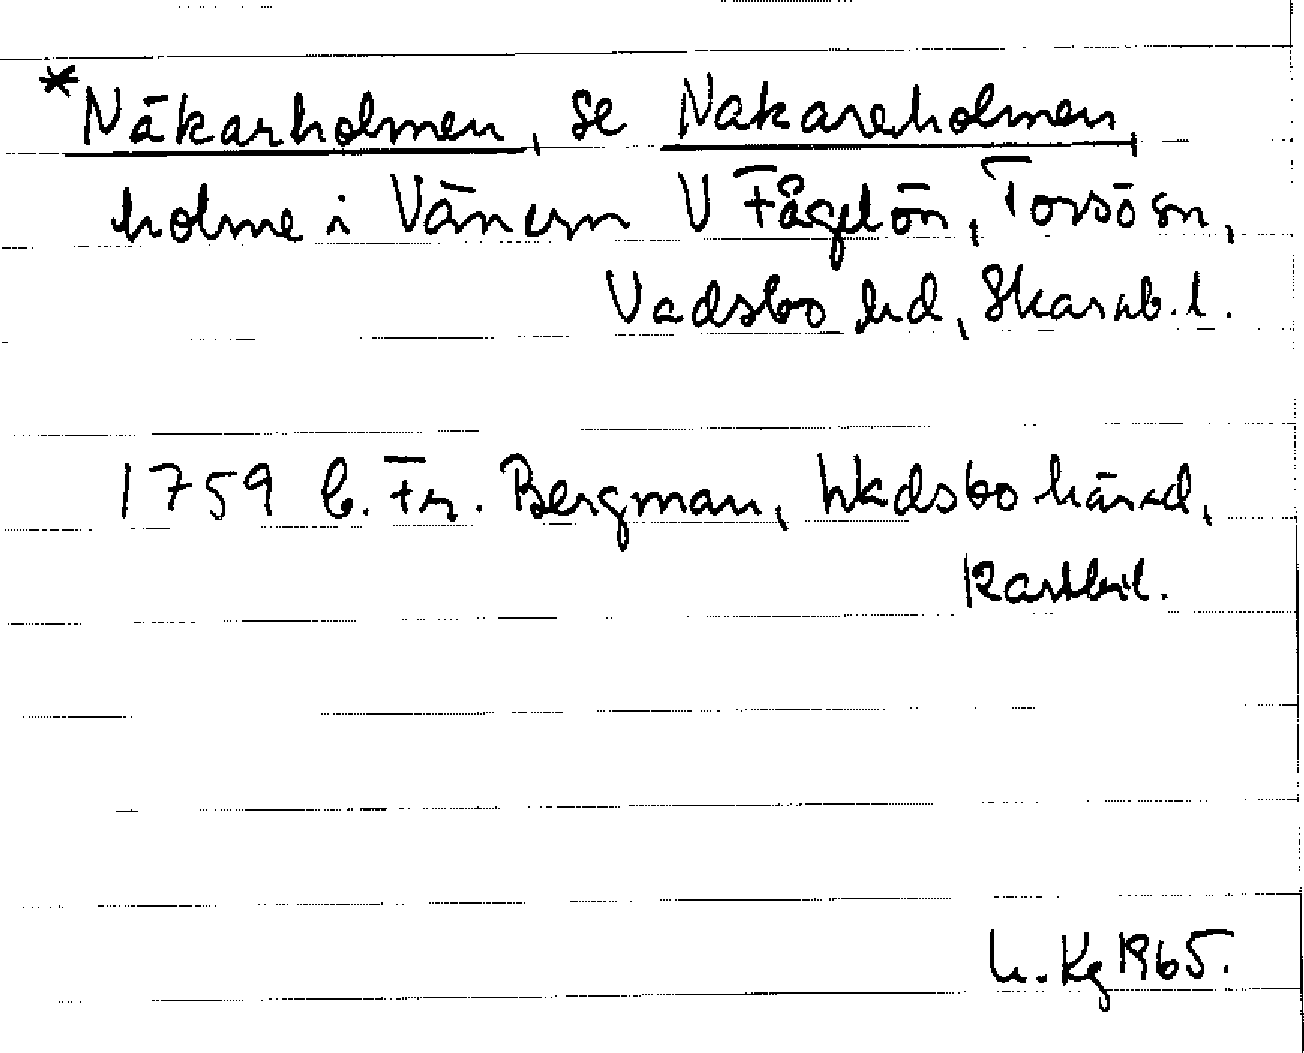 *Näkarholmen, se Nakareholmen,
holme i Vänern V Fågelön, Torsö sn,
Vadsbo hd, Skarab.l.
1759 C. Fr. Bergman, Wadsbo härad,
kartbil.
L. Kg 1965.